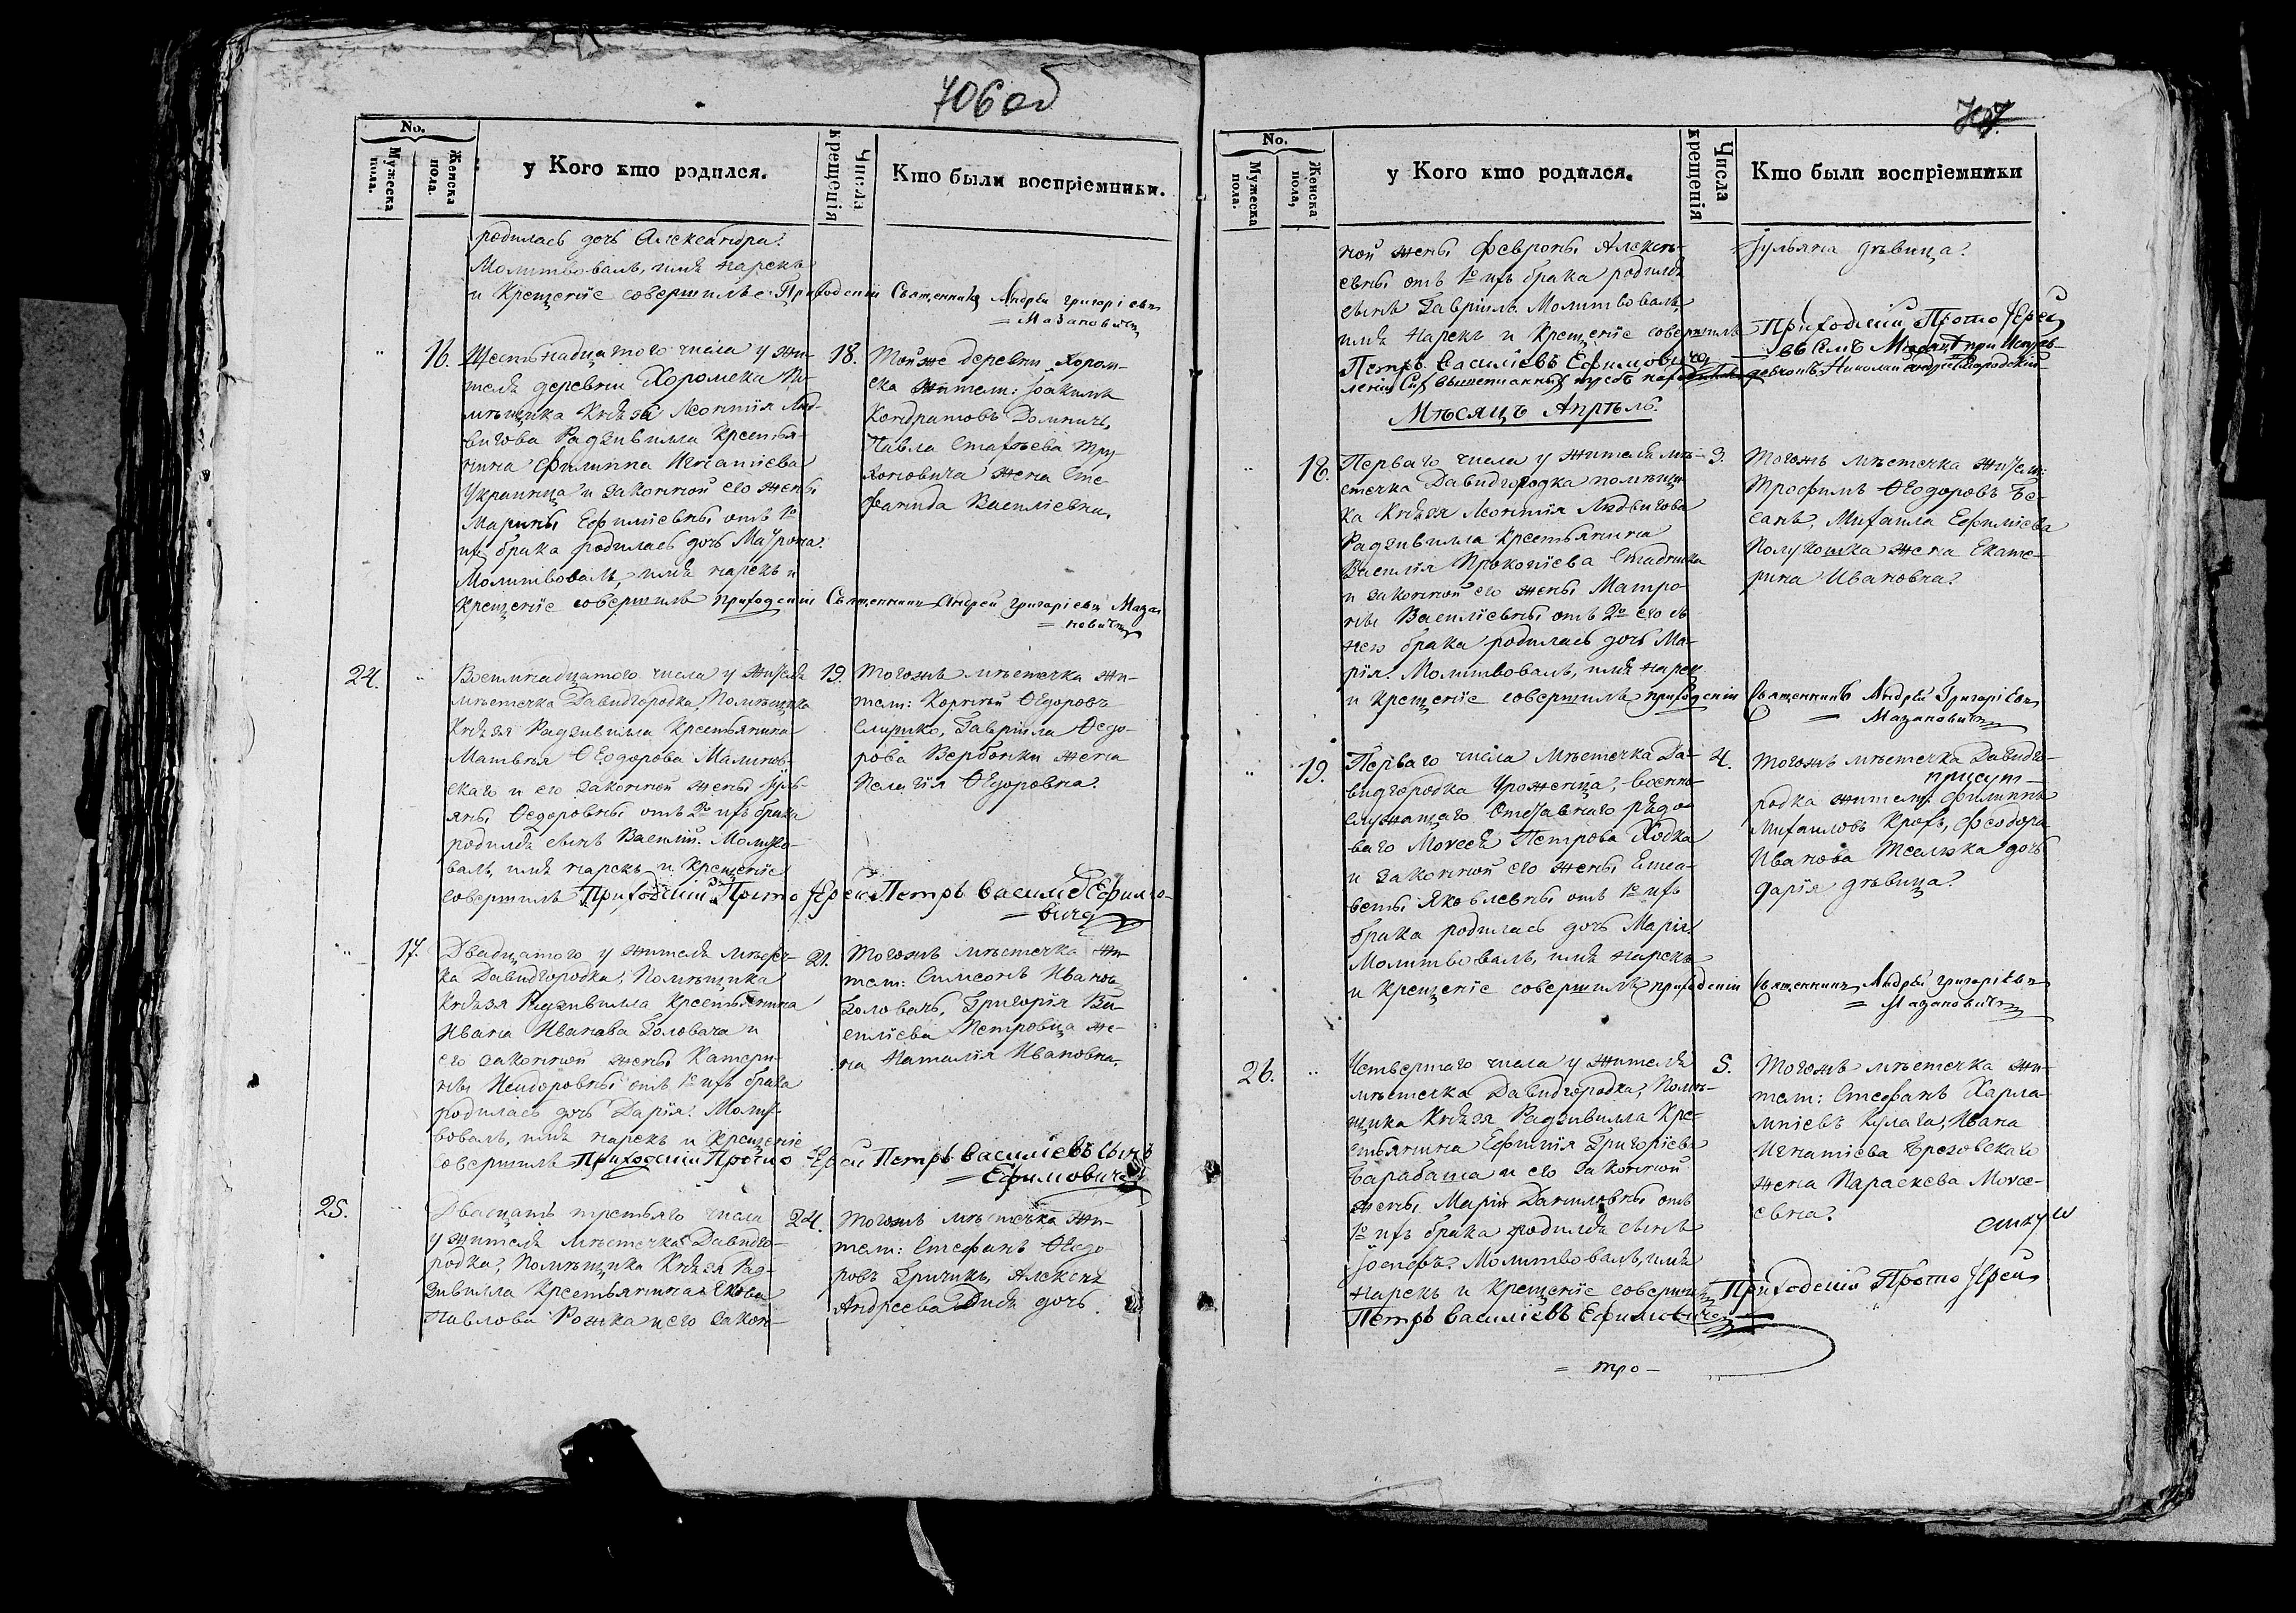 706 об
No.
Мужеска пола.
Женска пола.
у Кого кто родился.
Числа крещенія
Кто были воспріемники.
родилась дочь Александра.
Молитвовалъ, имя нарекъ
и Крещеніе совершилъ Приходскій Священникъ Андрей Григоріевъ
= Мазановичъ
16. Шестнадцатого числа у жи-
теля деревни Хоромска По-
мѣщика Князя Леонтія Люд-
вигова Радзивилла Крестья-
нина Филиппа Игнатіева
Украинца и законной его жены
Марины Ефиміевны отъ 1го
ихъ брака родилась дочь Маѵрона.
Молитвовалъ, имя нарекъ и
Крещеніе совершилъ приходскій Священникъ Андрей Григоріевъ Маза
= новичъ
18. Тойже деревни Хором-
ска жители: Іоакимъ
Кондратовъ Домничъ,
Павла Стафѣева Тру-
хоновича жена Сте-
фанида Василіевна.
24. Восемнадцатого числа у жителя
мѣстечка Давидгородка, Помѣщика
Князя Радзивилла Крестьянина
Матвѣя Ѳеодорова Малинов-
скаго и его законной жены Іуль-
яны Ѳедоровны отъ 2го ихъ брака
родился сынъ Василій. Молитво-
валъ, имя нарекъ и Крещеніе
совершилъ Приходскій Прото Іерей Петръ Василіевъ Ефимо-
= вичъ
19. Тогожъ мѣстечка жи-
тели: Корнній Ѳедоровъ
Слирко, Гавріила Ѳедо-
рова Вербочки жена
Пелагія Ѳедоровна.
17. Двадцатого у жителя мѣстеч-
ка Давидгородка, Помѣщика
Князя Радзивилла Крестьянина
Ивана Иванова Головача и
его законной жены Катери-
ны Исидоровны отъ 1го ихъ брака
родилась дочь Дарія. Молит-
вовалъ, имя нарекъ и Крещеніе
совершилъ Приходскій Прото Іерей Петръ Василіевъ сынъ
= Ефимовичъ
21. Тогожъ мѣстечка жи-
тели: Симеонъ Ивановъ
Головачъ, Григорія Ва-
силіева Петровца же-
на Наталія Ивановна.
25. Двадцать третьяго числа
у жителя мѣстечка Давидго-
родка, Помѣщика Князя Рад-
зивилла Крестьянина Якова
Павлова Рожка и его закон-
24. Тогожъ мѣстечка жи-
тели: Стефанъ Ѳедо-
ровъ Гричикъ, Алексѣя
Андреева Дидя дочь
707
No.
Мужеска пола.
Женска пола,
у Кого кто родился.
Числа крещенія
Кто были воспріемники
ной жены Февроны Алексѣ-
евны отъ 1го ихъ брака родился
сынъ Гавріилъ. Молитвовалъ,
имя нарекъ и Крещеніе совершилъ Приходскій Прото Іерей
Петръ Василіевъ Ефимовичъ
Іульяна дѣвица.
Мѣсяцъ Апрѣль.
18. Перваго числа у жителя мѣ-
стечка Давидгородка помѣщи-
ка Князя Леонтія Людвигова
Радзивилла Крестьянина
Василія Прокопіева Стадника
и законной его жены Матро-
ны Василіевны отъ 2го его съ
нею брака родилась дочь Ма-
рія. Молитвовалъ, имя нарекъ
и Крещеніе совершилъ приходскій Священникъ Андрей Григоріевъ
= Мазановичъ
3. Тогожъ мѣстечка жители:
Трофимъ Ѳеодоровъ Бе-
санъ, Михаила Ефиміева
Полукошка жена Екате-
рина Ивановна.
19. Перваго числа мѣстечка Да-
видгородка Уроженца, военно-
служащаго Отставнаго рядо-
ваго Моисея Петрова Ходка
и законной его жены Елиса-
веты Яковлевны отъ 1го ихъ
брака родилась дочь Марія
Молитвовалъ, имя нарекъ
и Крещеніе совершилъ приходскій Священникъ Андрей Григоріевъ
= Мазановичъ
4. Тогожъ мѣстечка Давидго-
присут-
родка жители: Филиппъ
Михаиловъ Крохъ, Феодора
Иванова Жселюка дочь
Дарія дѣвица.
26. Четвертаго числа у жителя
мѣстечка Давидгородка, Помѣ-
щика Князя Радзивилла Кре-
стьянина Ефимія Григоріева
Барабаша и его законной
жены Маріи Даниловны отъ
1го ихъ брака родился сынъ
Іосифъ. Молитвовалъ, имя
нарекъ и Крещеніе совершилъ Приходскій Прото Іерей
Петръ Василіевъ Ефимовичъ
5. Тогожъ мѣстечка жи-
тели: Стефанъ Харла-
мпіевъ Кулага, Ивана
Игнатіева Брезовскаго
жена Параскева Моисе-
евна.
= тро-